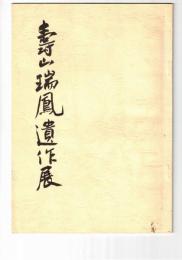 壽山瑞鳳遺作展